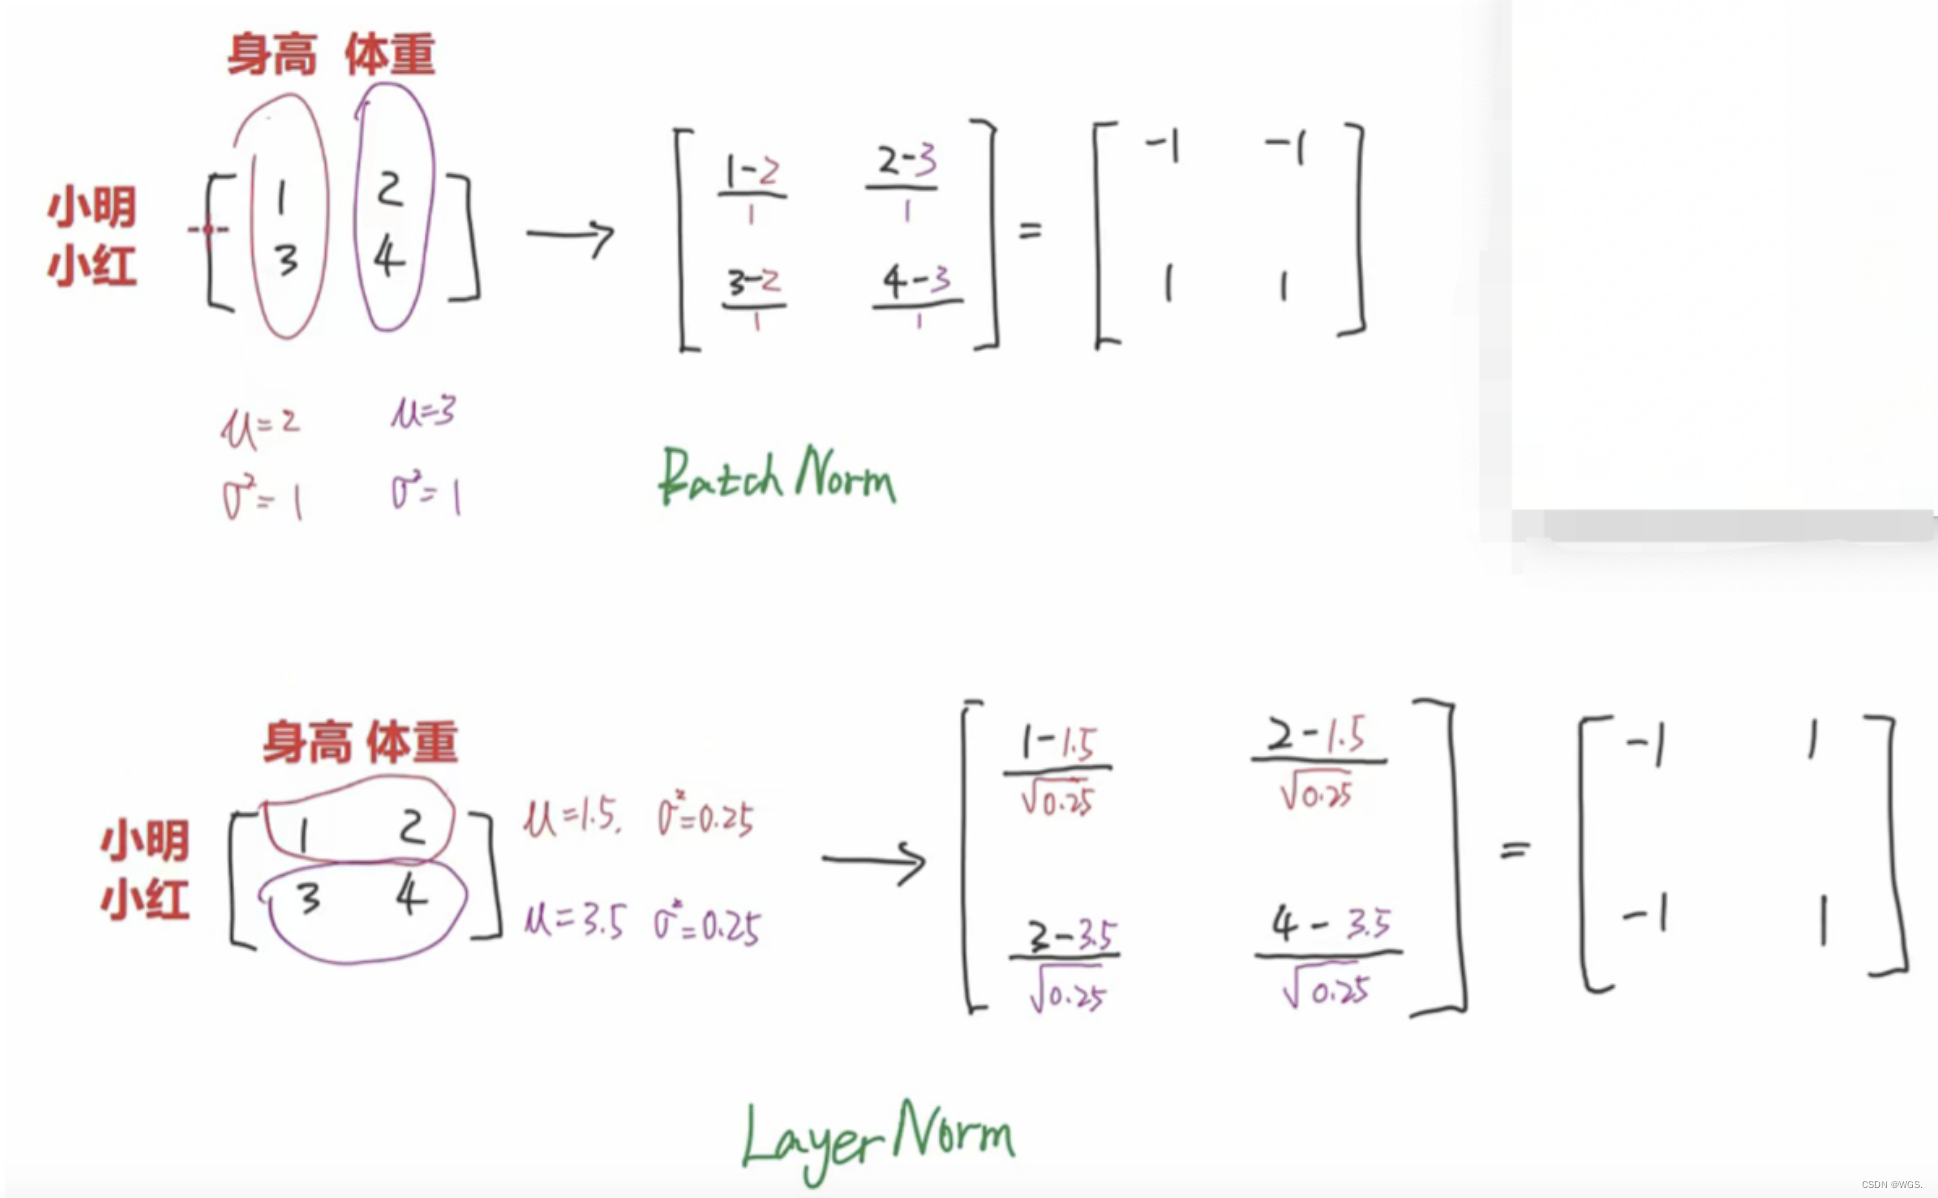 身高 体重
小明 [ 1 2 ]
小红 [ 3 4 ]
→ [ (1-2)/1 (2-3)/1 ] = [ -1 -1 ]
[ (3-2)/1 (4-3)/1 ] [ 1 1 ]
μ=2 μ=3
σ²=1 σ²=1
Batch Norm
身高 体重
小明 [ 1 2 ] μ=1.5, σ²=0.25
小红 [ 3 4 ] μ=3.5 σ²=0.25
→ [ (1-1.5)/√0.25 (2-1.5)/√0.25 ] = [ -1 1 ]
[ (3-3.5)/√0.25 (4-3.5)/√0.25 ] [ -1 1 ]
LayerNorm
CSDN @WGS.